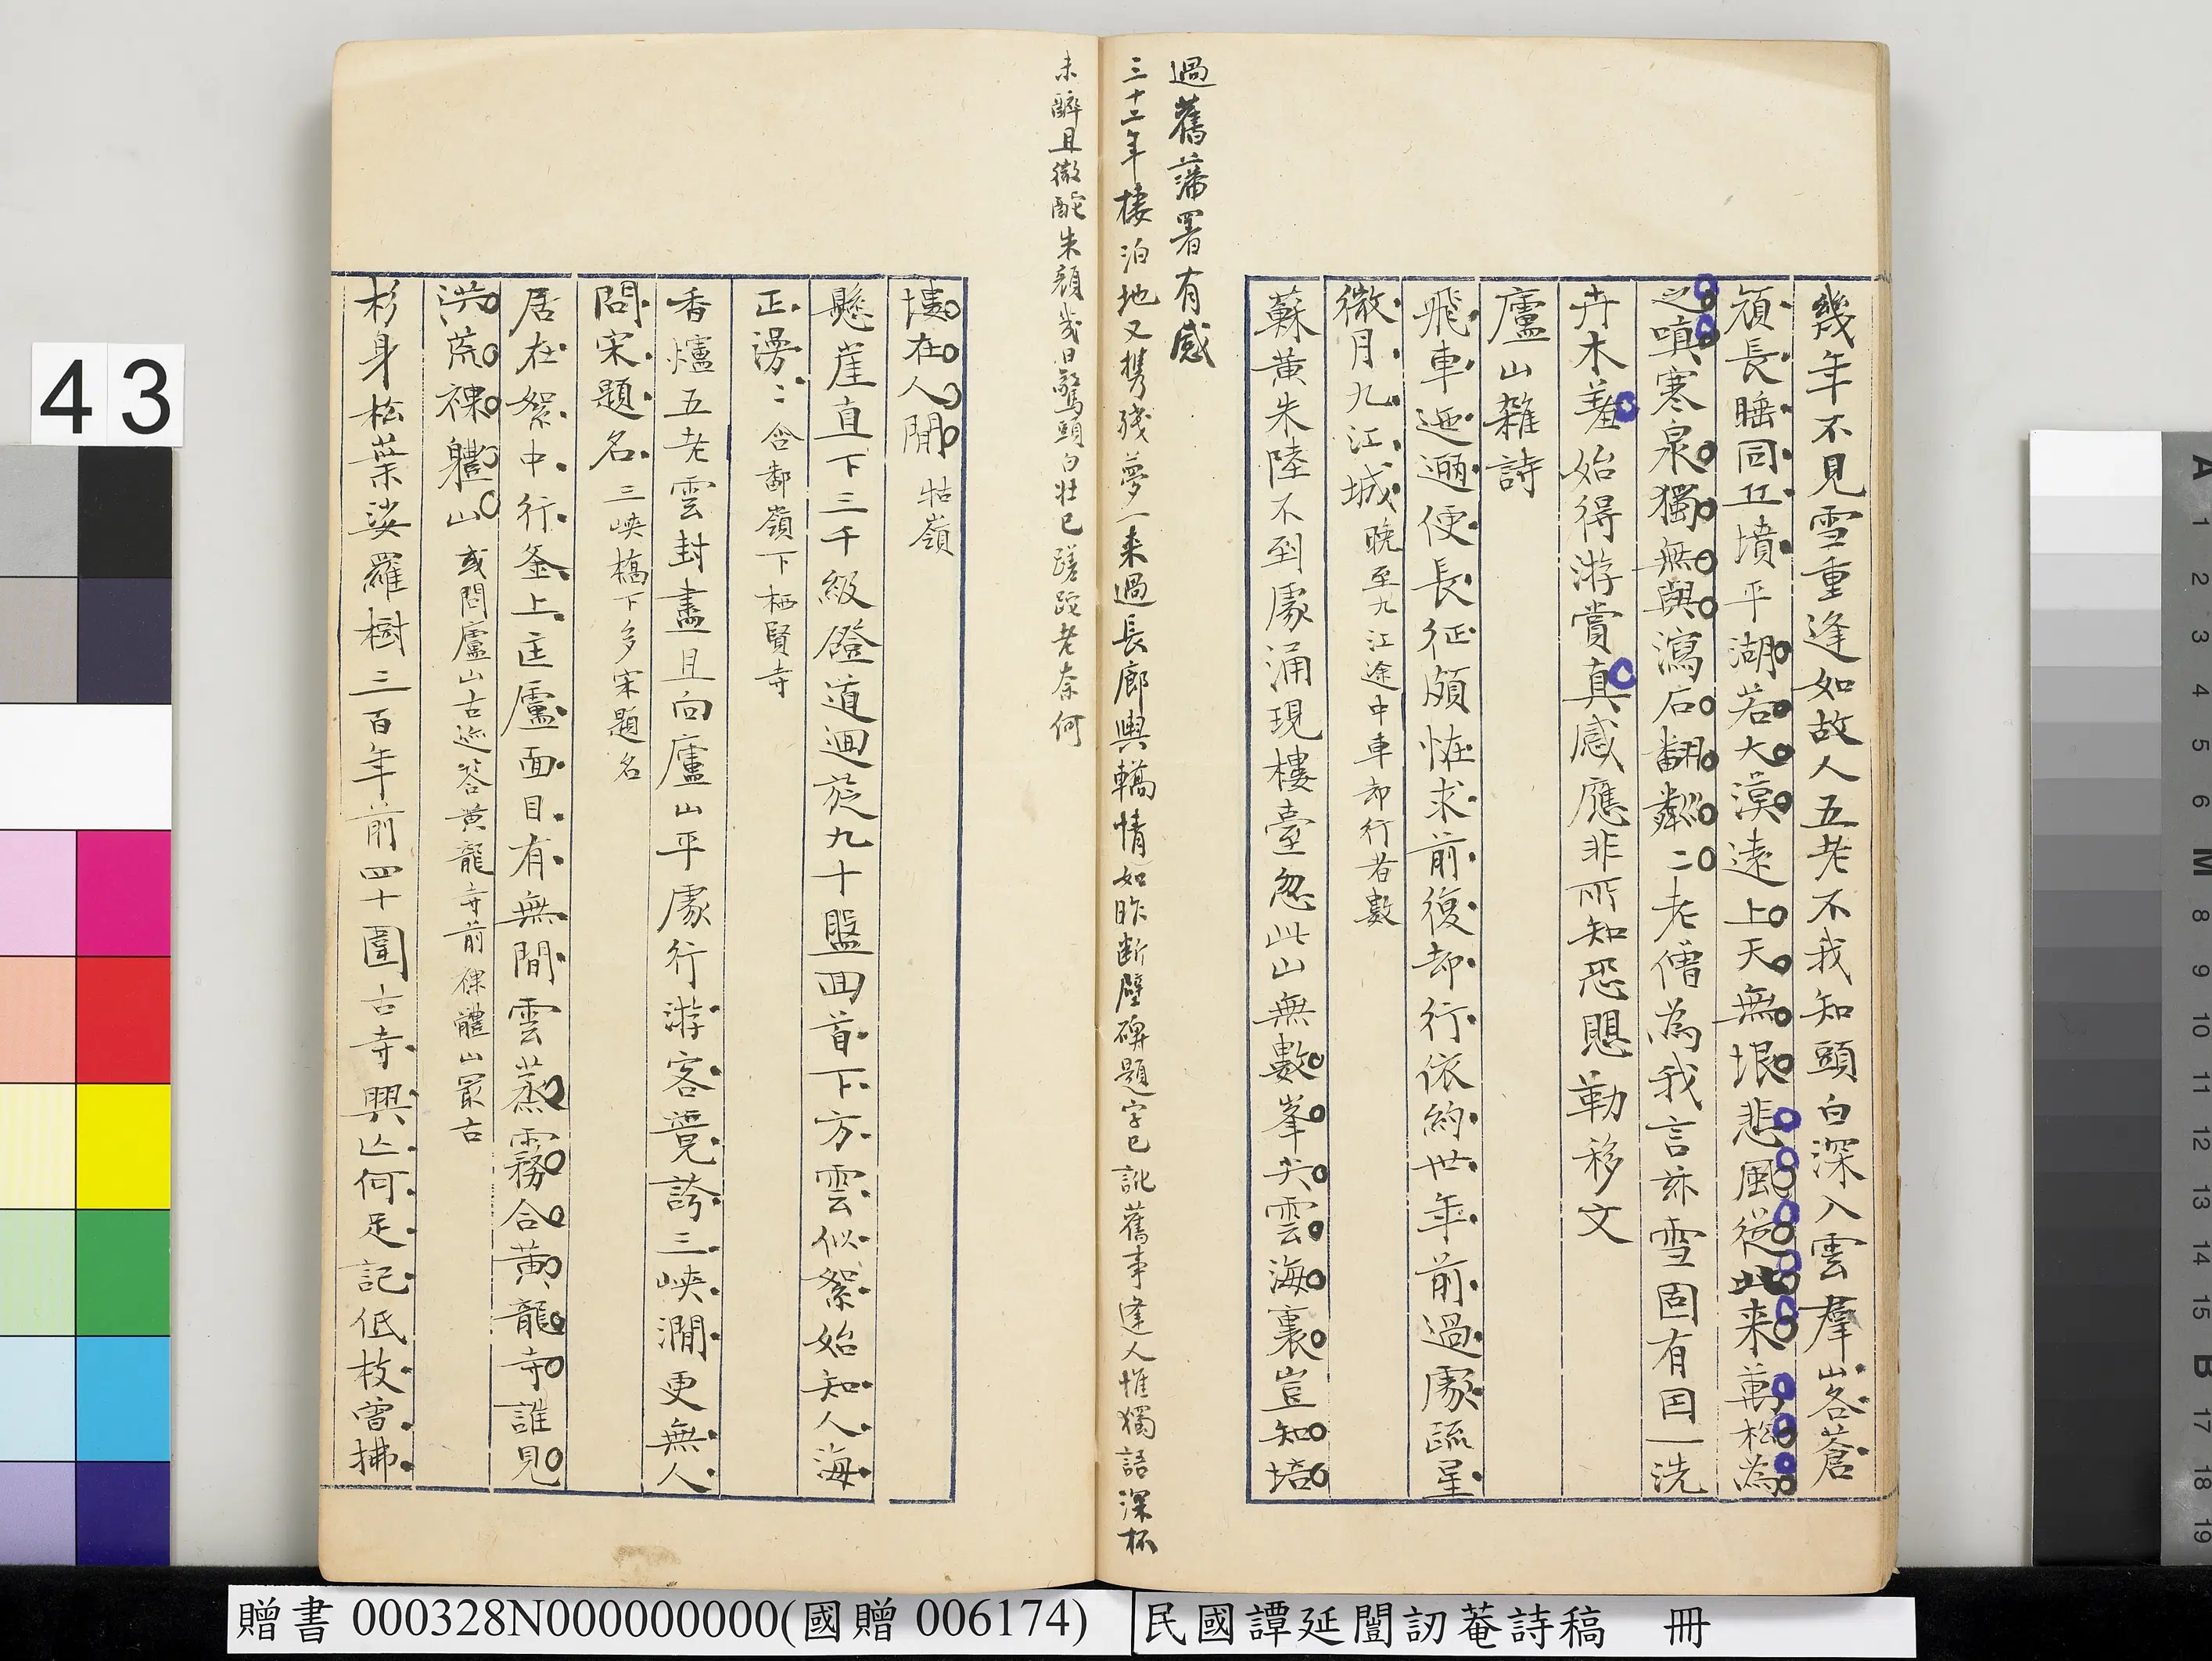 幾年不見雪重逢如故人五老不我知頭白深入雲羣山各蒼
頎長睡同丘墳平湖若大漠遠上天無垠悲風從此来萬松為
之嗔寒泉獨無與瀉石翻粼二老僧為我言茲雪固有因一洗
卉木羞始得游賞真感應非所知恐愳勒移文
廬山雜詩
飛車迤逦便長征頗恠求前復却行依約廿年前過處疏星
微月九江城晚至九江途中車却行者數
蘇黃朱陸不到處涌現樓臺忽此山無數峯尖雲海裏豈知培
過舊藩署有感
三十二年棲泊地又攜殘夢一来過長廊輿轎情如昨斷壁碑題字已訛舊事逢人惟獨語深杯
未醉且微酡朱顏幾日驚頭白壯已蹉跎老奈何
塿在人間 牯嶺
懸崖直下三千級磴道迴旋九十盤回首下方雲似絮始知人海
正漫二含鄱嶺下栖賢寺
香爐五老雲封盡且向廬山平處行游客覺誇三峽澗更無人
問宋題名三峽橋下多宋題名
居在絮中行釜上匡廬面目有無間雲蒸霧合黃龍寺誰見
洪荒裸軆山或問廬山古迹答黃龍寺前裸體山最古
杉身松葉娑羅樹三百年前四十圍古寺興亡何足記低枝曾拂
43
贈書 000328N000000000(國贈 006174)
民國譚延闓訒菴詩稿 冊
A 1 2 3 4 5 6 M 8 9 10 11 12 13 14 15 B 17 18 19